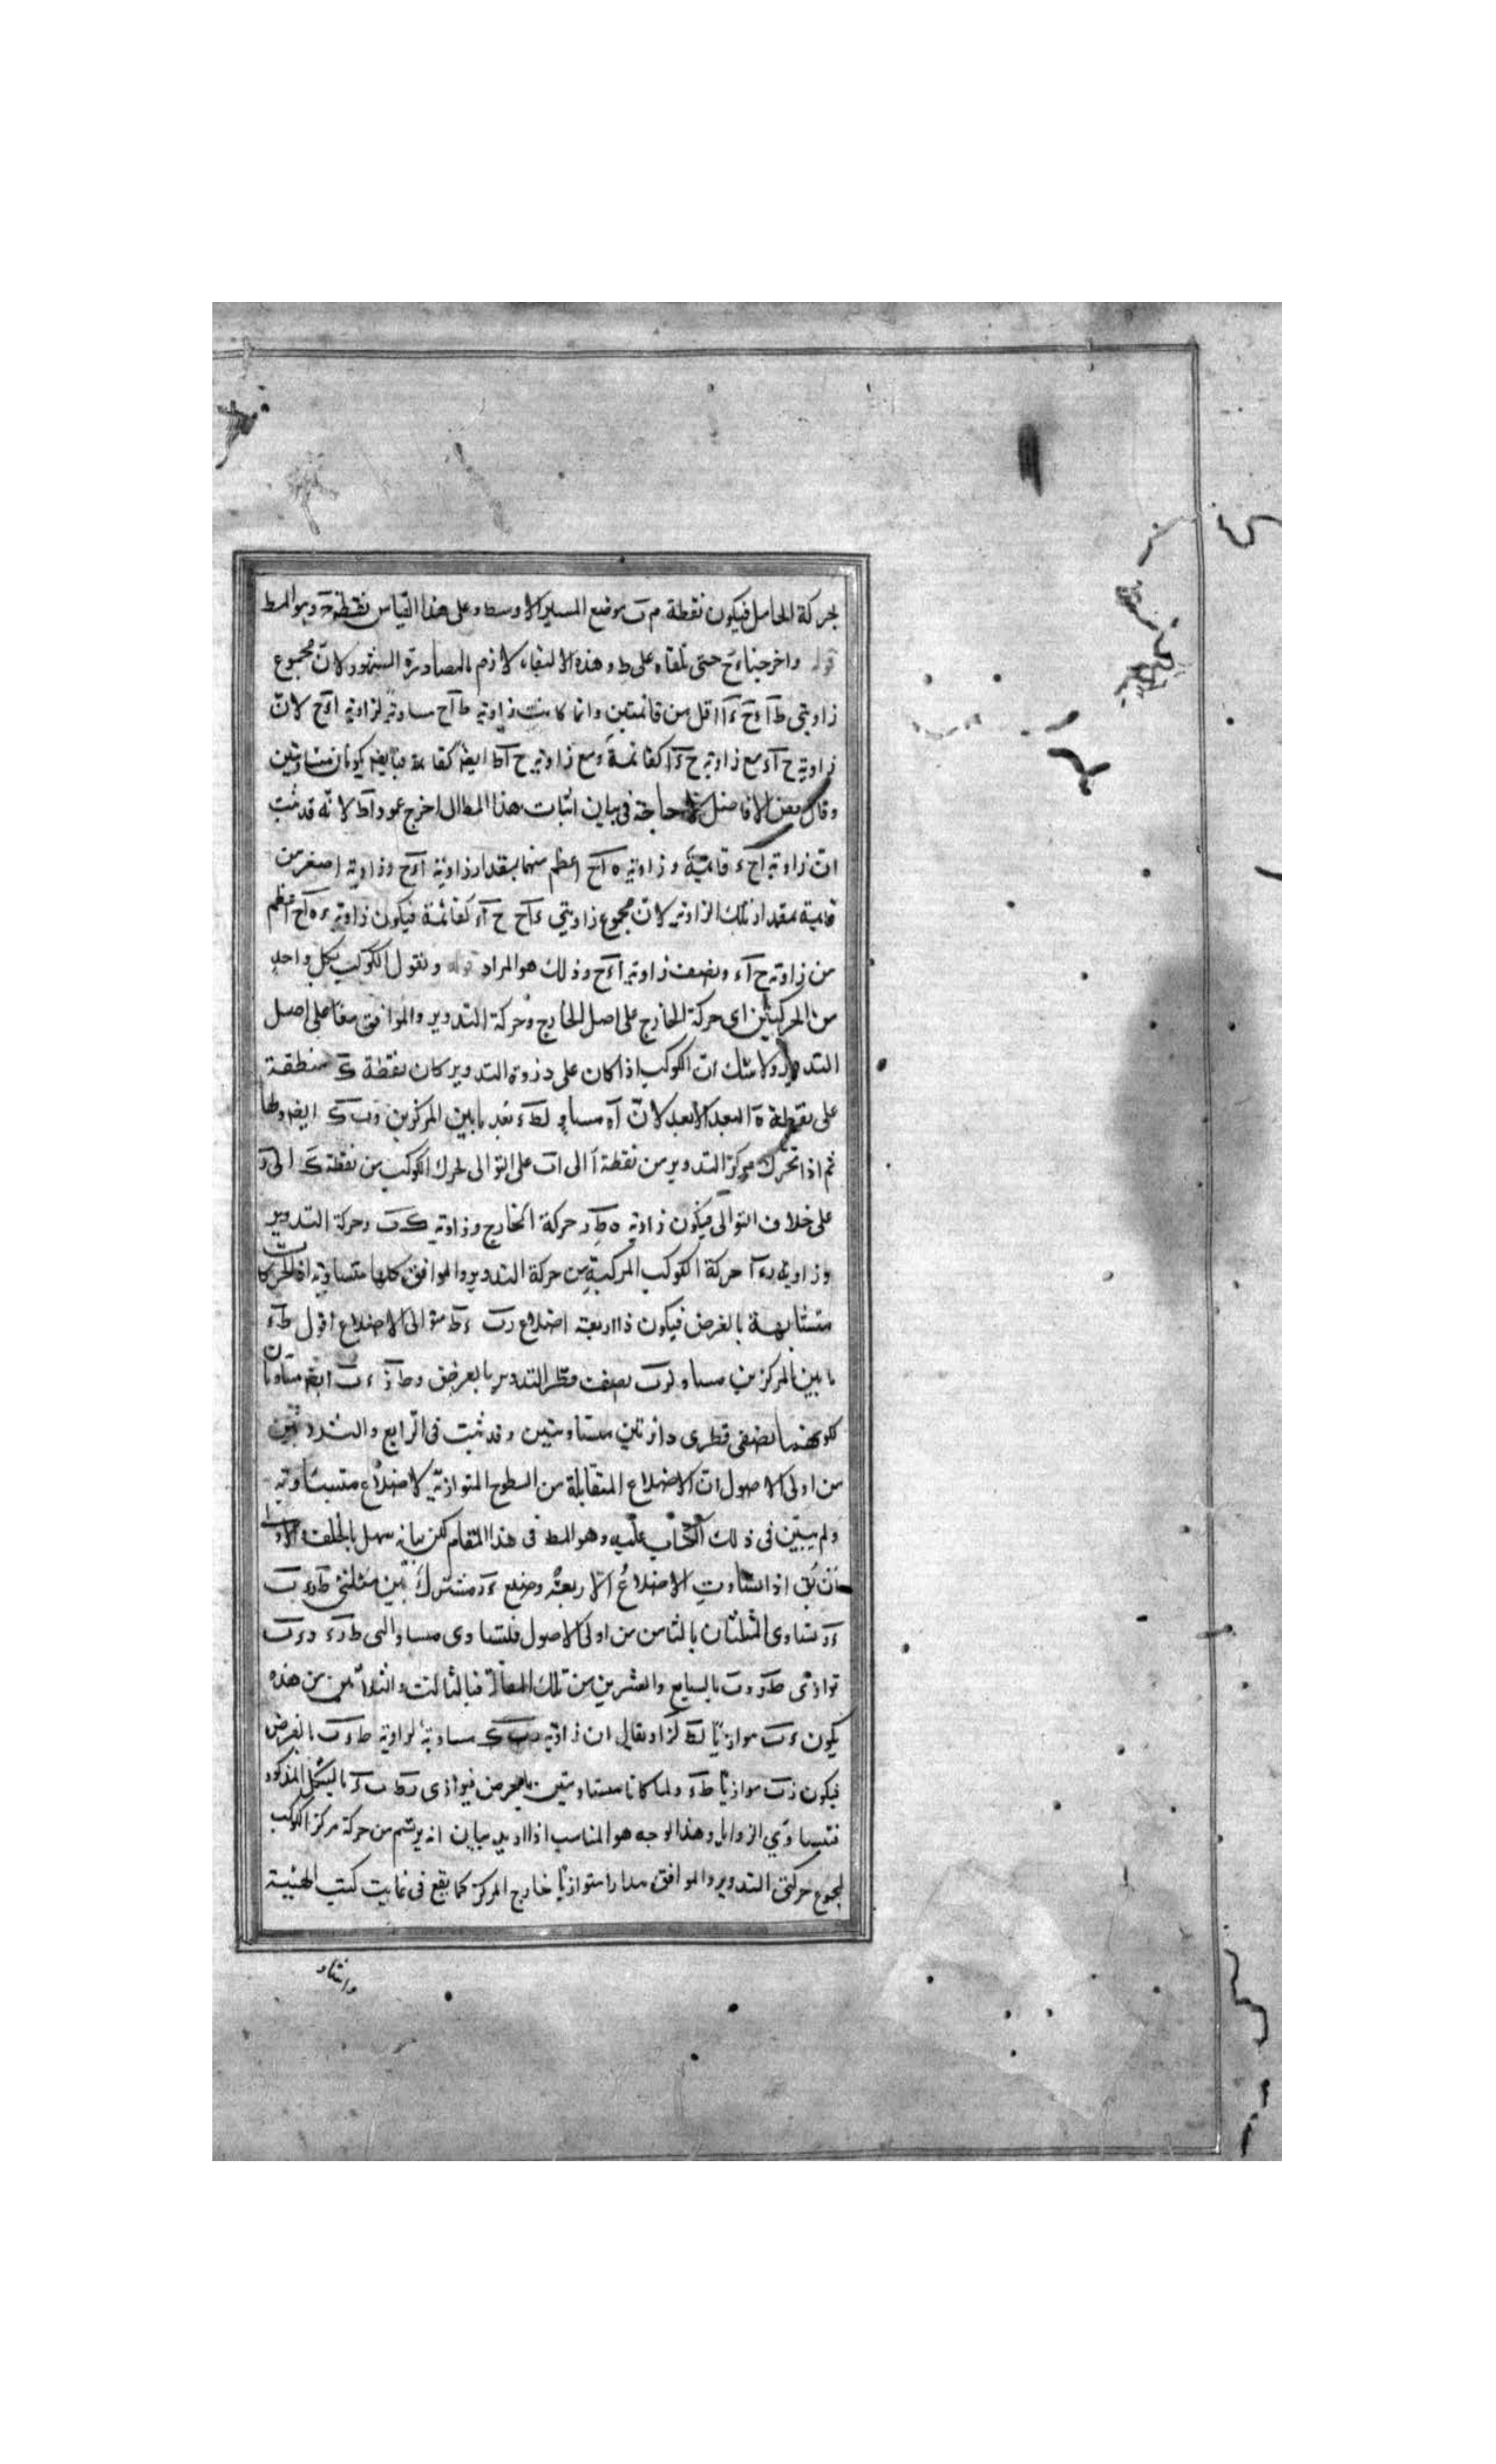 بحركة الحامل فيكون نقطة م ب موضع المسير الاوسط وعلى هذا القياس نقطة وهو المط
قوله واخرجناه ح حتى تلقاه على ط وهذه الالتقاء لازم بالمصادرة المشهورة لانّ مجموع
زاويتى ط آ ءح ء آ اقل من قائمتين وانما كانت زاوية ط آح مساوية لزاوية اءح لانّ
زاوية ح آء مع زاوية ح ءآ كقائمة ومع زاوية ح آط ايضا كقائمة يكونان متساويتين
وقال بعض الافاضل لا حاجة فى بيان اثبات هذا المط الى اخرج عمود اط لانه قد ثبت
انّ زاوية اح ء قائمة وزاوية ه اح اعظم منها بمقدار زاوية اءح وزاوية اصغر من
قائمة بمقدار تلك الزاوية لانّ مجموع زاويتى ءاح ح آء كقائمة فيكون زاوية ه اح اعظم
من زاوية ح آء وبضعف زاوية اءح وذلك هو المراد قوله ونقول الكوكب بكل واحد
من الحركتين اى حركة الخارج على اصل الخارج وحركة التدوير والموافق معا على اصل
التدوير ولا شك انّ الكوكب اذا كان على ذروة التدوير كان نقطة ك منطقة
على نقطة ه البعد الابعد لانّ آه مساو ل ط ء بعد ما بين المركزين و ب ك ايضا
ثم اذا تحرّك مركز التدوير من نقطة آ الى ا ب على التوالى تحرك الكوكب من نقطة ك الى ر
على خلاف التوالى فيكون زاوية ه ط ر حركة الخارج وزاوية ك ب ر حركة التدوير
وزاوية رء آ حركة الكوكب المركبة من حركة التدوير والموافق كلها متساوية اذ الحركات
متشابهة بالفرض فيكون ذا اربعة اضلاع رب ء ط متوالى الاضلاع اقول ط ء
ما بين المركزين مساو ل رب نصف قطر التدوير بالفرض و ط ر ء ب ايضا متساويان
لكونهما نصفى قطرى دائرتين متساويتين وقد ثبت فى الرابع والثلاثين
من اولى الاصول انّ الاضلاع المتقابلة من السطوح المتوازية الاضلاع متساوية
ولم يبيّن فى ذلك الكتاب عليه وهو المط فى هذا المقام لكن بيانه سهل بالخلف
ان يق اذا تساوت الاضلاع الاربعة وضلع ءر مشترك بين مثلثى ط رء ب
ءر تساوى المثلثان بالثامن من اولى الاصول فلتساوى متبادلتى ط رء رء ب
توازى ط ر ء ب بالسابع والعشرين من تلك المقالة فبالثالث والثلاثين من هذه
يكون ء ب موازيا ل ط ر او يقال ان زاوية ر ب ك مساوية لزاوية ط ء ب بالفرض
فيكون ر ب موازيا ط ء ولما كانا متساويتين بالفرض فيوازى ر ط ب ء بالشكل المذكور
فتساوى الزوايا وهذا الوجه هو المناسب اذا اريد بيان انه يرتسم من حركة مركز الكوكب
بمجموع حركتى التدوير والموافق مدارا متوازيا خارج المركز كما يقع فى غاية كتب الهيئة
واشار